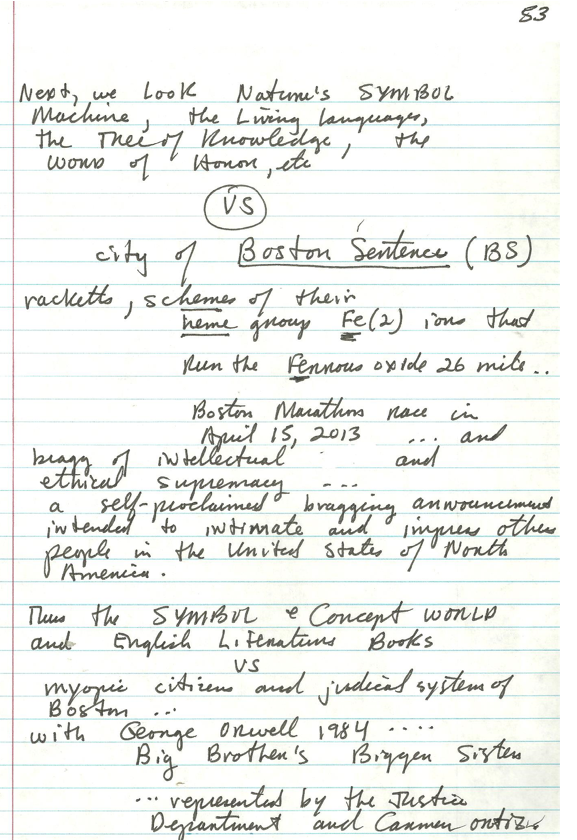 53
Next, we look Nature's SYMBOL
Machine, the Living languages,
the Tree of Knowledge, the
word of Honor, etc
VS
city of Boston Sentence (BS)
racketts, schemes of their
heme group Fe(2) ions that
Run the Ferrous oxide 26 mile..
Boston Marathon race in
April 15, 2013 ... and
bragg of intellectual and
ethical supremacy ....
a self-proclaimed bragging announcement
intended to intimate and impress others
people in the United States of North
America.
Thus the SYMBOL & Concept WORLD
and English Literature Books
VS
myopic citizens and judical system of
Boston ...
with George Orwell 1984 ....
Big Brother's Bigger Sister
... represented by the Justice
Department and Carmen